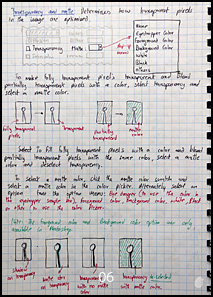 Transparency and matte Determines how transparent pixels
in the image are optimised.
None
Eyedropper Color
Foreground Color
Background Color
White
Black
others
Transparency
Matte
pop-up
menu
To make fully transparent pixels transparent and blend
partially transparent pixels with a color, select transparency and
select a matte color.
fully transparent
pixels
transparent
partially
transparent
matte
color
Select To fill fully transparent pixels with a color and blend
partially transparent pixels with the same color, select a matte
color and deselect transparency.
To select a matte color, click the matte color swatch and
select a matte color in the color picker. Alternately select an
option from the matte menu: Eye dropper (to use the color in
the eyedropper sample box), foreground color, background color, white, black
or other (to use the color picker).
Note: The foreground color and Background color option are only
available in Photoshop.
transparency
matte
transparency
with no matte
with matte
color
06